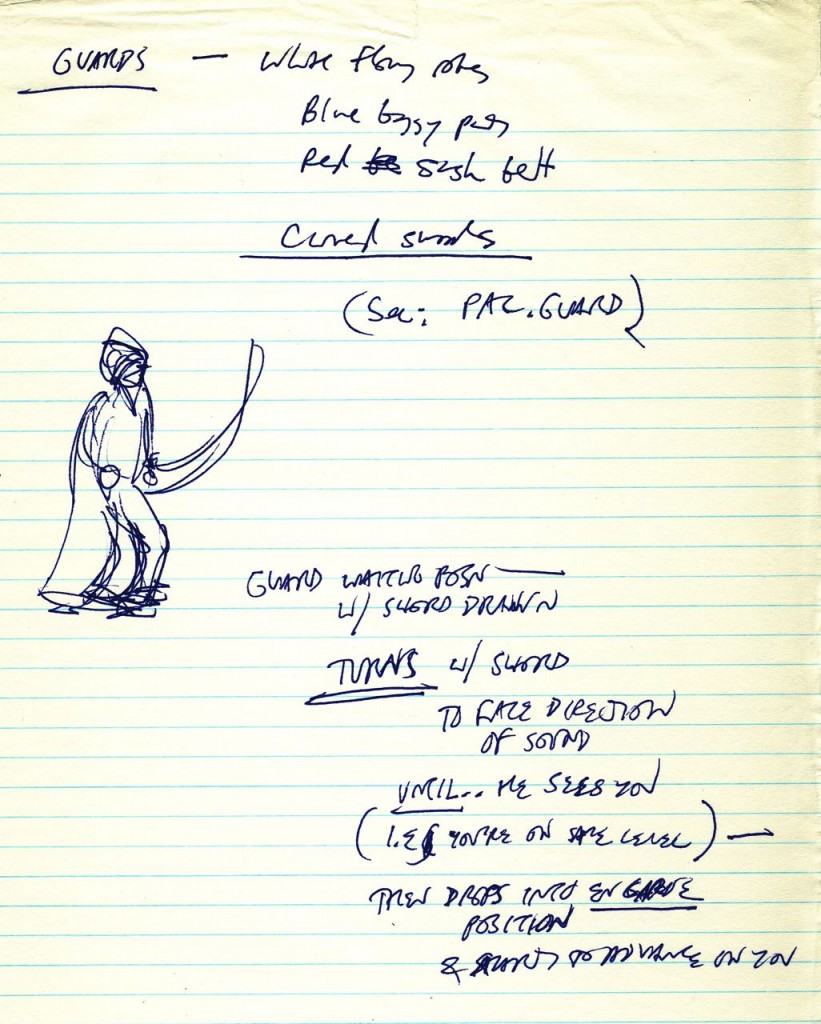 GUARDS — White flowing robes
Blue baggy pants
Red sash belt
Curved swords
(See: PAL. GUARD)
GUARD WAITING POSN —
W/ SWORD DRAWN
TURNS W/ SWORD
TO FACE DIRECTION
OF SOUND
UNTIL.. HE SEES YOU
(I.E. YOU'RE ON SAME LEVEL) —
THEN DROPS INTO EN GARDE
POSITION
& STARTS TO ADVANCE ON YOU